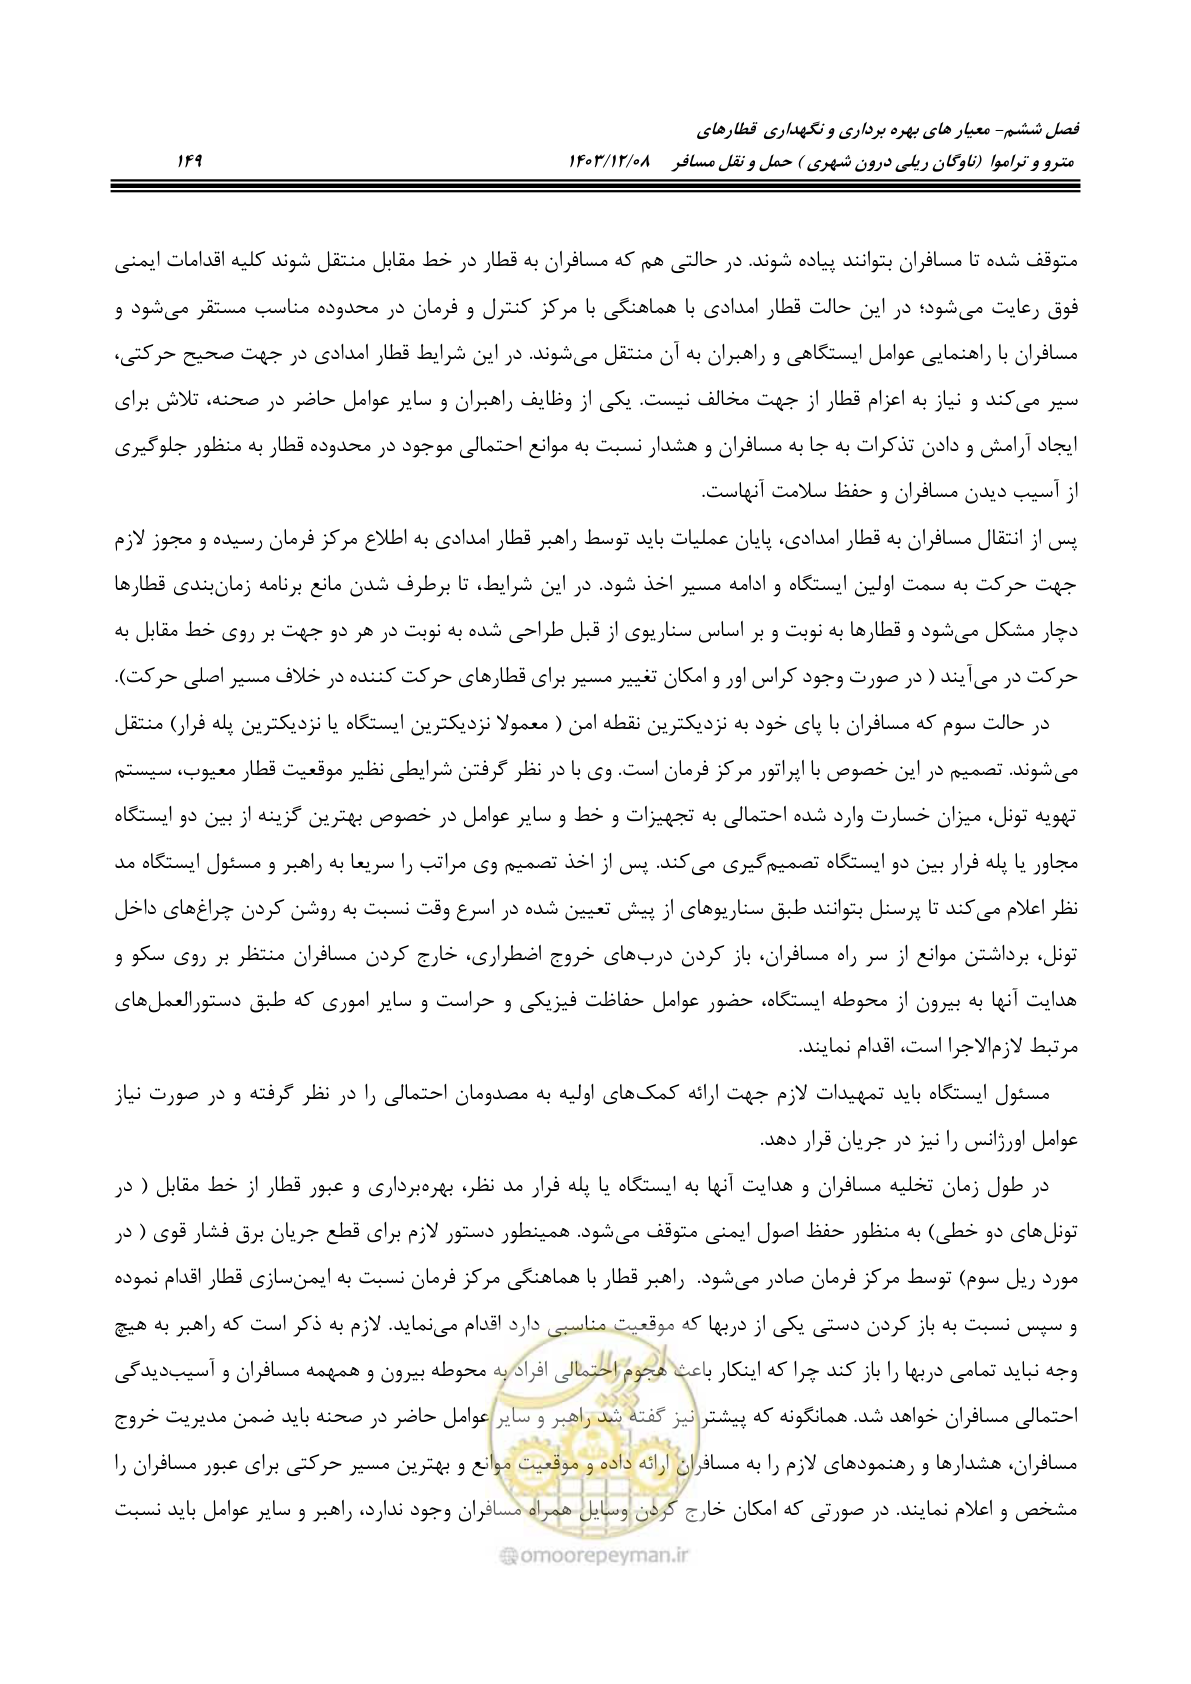 فصل ششم- معیار های بهره برداری و نگهداری قطارهای
مترو و تراموا (ناوگان ریلی درون شهری ) حمل و نقل مسافر ۱۴۰۳/۱۲/۰۸ ۱۴۹
متوقف شده تا مسافران بتوانند پیاده شوند. در حالتی هم که مسافران به قطار در خط مقابل منتقل شوند کلیه اقدامات ایمنی
فوق رعایت می‌شود؛ در این حالت قطار امدادی با هماهنگی با مرکز کنترل و فرمان در محدوده مناسب مستقر می‌شود و
مسافران با راهنمایی عوامل ایستگاهی و راهبران به آن منتقل می‌شوند. در این شرایط قطار امدادی در جهت صحیح حرکتی،
سیر می‌کند و نیاز به اعزام قطار از جهت مخالف نیست. یکی از وظایف راهبران و سایر عوامل حاضر در صحنه، تلاش برای
ایجاد آرامش و دادن تذکرات به جا به مسافران و هشدار نسبت به موانع احتمالی موجود در محدوده قطار به منظور جلوگیری
از آسیب دیدن مسافران و حفظ سلامت آنهاست.
پس از انتقال مسافران به قطار امدادی، پایان عملیات باید توسط راهبر قطار امدادی به اطلاع مرکز فرمان رسیده و مجوز لازم
جهت حرکت به سمت اولین ایستگاه و ادامه مسیر اخذ شود. در این شرایط، تا برطرف شدن مانع برنامه زمان‌بندی قطارها
دچار مشکل می‌شود و قطارها به نوبت و بر اساس سناریوی از قبل طراحی شده به نوبت در هر دو جهت بر روی خط مقابل به
حرکت در می‌آیند ( در صورت وجود کراس اور و امکان تغییر مسیر برای قطارهای حرکت کننده در خلاف مسیر اصلی حرکت).
در حالت سوم که مسافران با پای خود به نزدیکترین نقطه امن ( معمولا نزدیکترین ایستگاه یا نزدیکترین پله فرار) منتقل
می‌شوند. تصمیم در این خصوص با اپراتور مرکز فرمان است. وی با در نظر گرفتن شرایطی نظیر موقعیت قطار معیوب، سیستم
تهویه تونل، میزان خسارت وارد شده احتمالی به تجهیزات و خط و سایر عوامل در خصوص بهترین گزینه از بین دو ایستگاه
مجاور یا پله فرار بین دو ایستگاه تصمیم‌گیری می‌کند. پس از اخذ تصمیم وی مراتب را سریعا به راهبر و مسئول ایستگاه مد
نظر اعلام می‌کند تا پرسنل بتوانند طبق سناریوهای از پیش تعیین شده در اسرع وقت نسبت به روشن کردن چراغ‌های داخل
تونل، برداشتن موانع از سر راه مسافران، باز کردن درب‌های خروج اضطراری، خارج کردن مسافران منتظر بر روی سکو و
هدایت آنها به بیرون از محوطه ایستگاه، حضور عوامل حفاظت فیزیکی و حراست و سایر اموری که طبق دستورالعمل‌های
مرتبط لازم‌الاجرا است، اقدام نمایند.
مسئول ایستگاه باید تمهیدات لازم جهت ارائه کمک‌های اولیه به مصدومان احتمالی را در نظر گرفته و در صورت نیاز
عوامل اورژانس را نیز در جریان قرار دهد.
در طول زمان تخلیه مسافران و هدایت آنها به ایستگاه یا پله فرار مد نظر، بهره‌برداری و عبور قطار از خط مقابل ( در
تونل‌های دو خطی) به منظور حفظ اصول ایمنی متوقف می‌شود. همینطور دستور لازم برای قطع جریان برق فشار قوی ( در
مورد ریل سوم) توسط مرکز فرمان صادر می‌شود. راهبر قطار با هماهنگی مرکز فرمان نسبت به ایمن‌سازی قطار اقدام نموده
و سپس نسبت به باز کردن دستی یکی از دربها که موقعیت مناسبی دارد اقدام می‌نماید. لازم به ذکر است که راهبر به هیچ
وجه نباید تمامی دربها را باز کند چرا که اینکار باعث هجوم احتمالی افراد به محوطه بیرون و همهمه مسافران و آسیب‌دیدگی
احتمالی مسافران خواهد شد. همانگونه که پیشتر نیز گفته شد راهبر و سایر عوامل حاضر در صحنه باید ضمن مدیریت خروج
مسافران، هشدارها و رهنمودهای لازم را به مسافران ارائه داده و موقعیت موانع و بهترین مسیر حرکتی برای عبور مسافران را
مشخص و اعلام نمایند. در صورتی که امکان خارج کردن وسایل همراه مسافران وجود ندارد، راهبر و سایر عوامل باید نسبت
امور پیمان
@omoorepeyman.ir